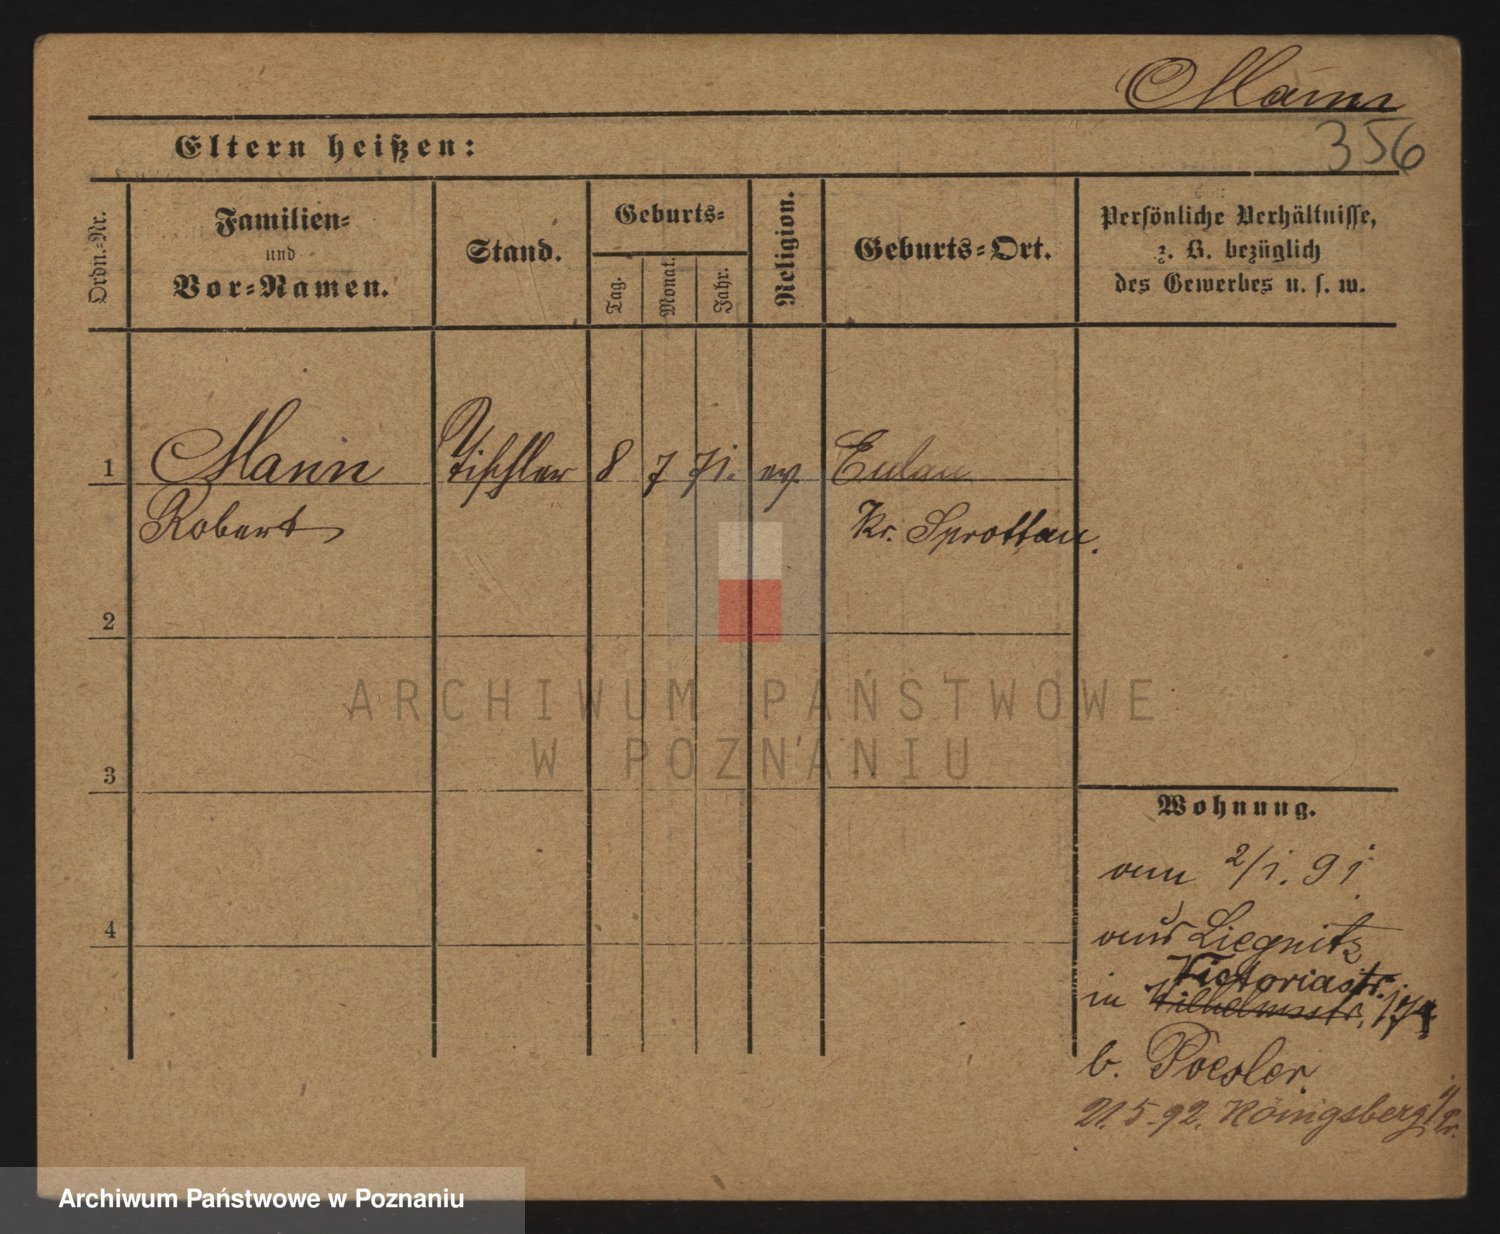 Mann
356
Eltern heißen:
Ordn.-Nr.
Familien-
und
Vor-Namen.
Stand.
Geburts-
Tag.
Monat.
Jahr.
Religion.
Geburts-Ort.
Persönliche Verhältnisse,
z. B. bezüglich
des Gewerbes u. s. w.
1 Mann Tischler 8 7 71. ev. Eulau
Robert Kr. Sprottau.
2
ARCHIWUM PAŃSTWOWE
W POZNANIU
3
Wohnung.
vom 2/1. 91
4
aus Liegnitz
Victoriastr.
in Wilhelmstr.
b. Poesler.
21.5.92. Königsberg i/Pr.
Archiwum Państwowe w Poznaniu